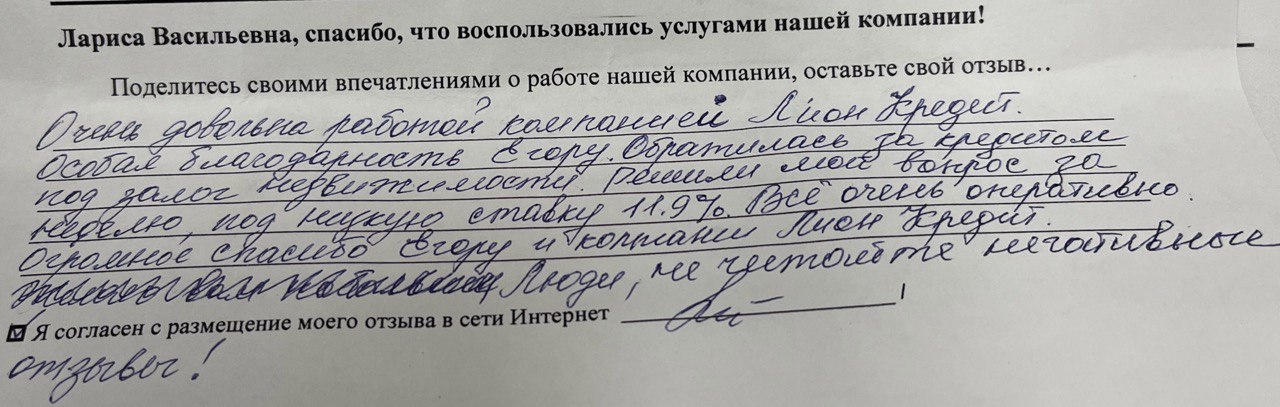 Лариса Васильевна, спасибо, что воспользовались услугами нашей компании!
Поделитесь своими впечатлениями о работе нашей компании, оставьте свой отзыв…
Очень довольна работой компанией Лион Кредит.
Особая благодарность Егору. Обратилась за кредитом
под залог недвижимости. Решили мой вопрос за
неделю, под низкую ставку 11.9%. Всё очень оперативно.
Огромное спасибо Егору и компании Лион Кредит.
Люди, не читайте негативные
Я согласен с размещение моего отзыва в сети Интернет
отзывы!